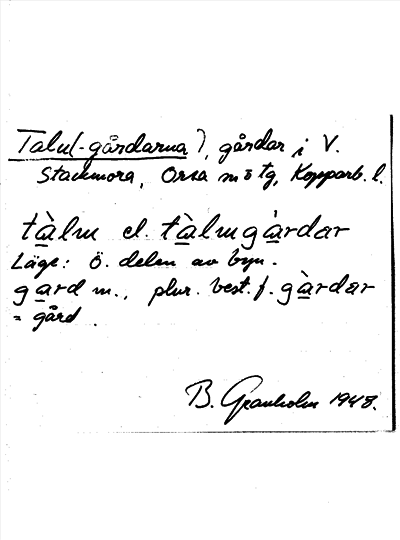 Talu(-gårdarna), gårdar i V.
Stackmora, Orsa sn o tg, Kopparb. l.
tàlm el. tàlmgàrdar
Läge: Ö. delen av byn.
gard m., plur. best. f. gàrdar
= gård.
B. Granholm 1948.